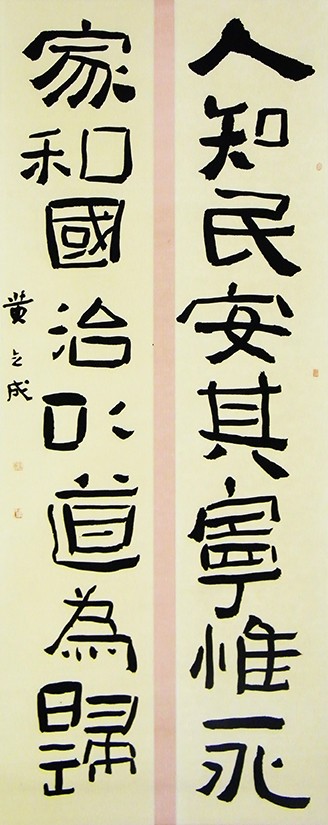 人知民安其寧惟永
家和國治以道為歸
黄之成